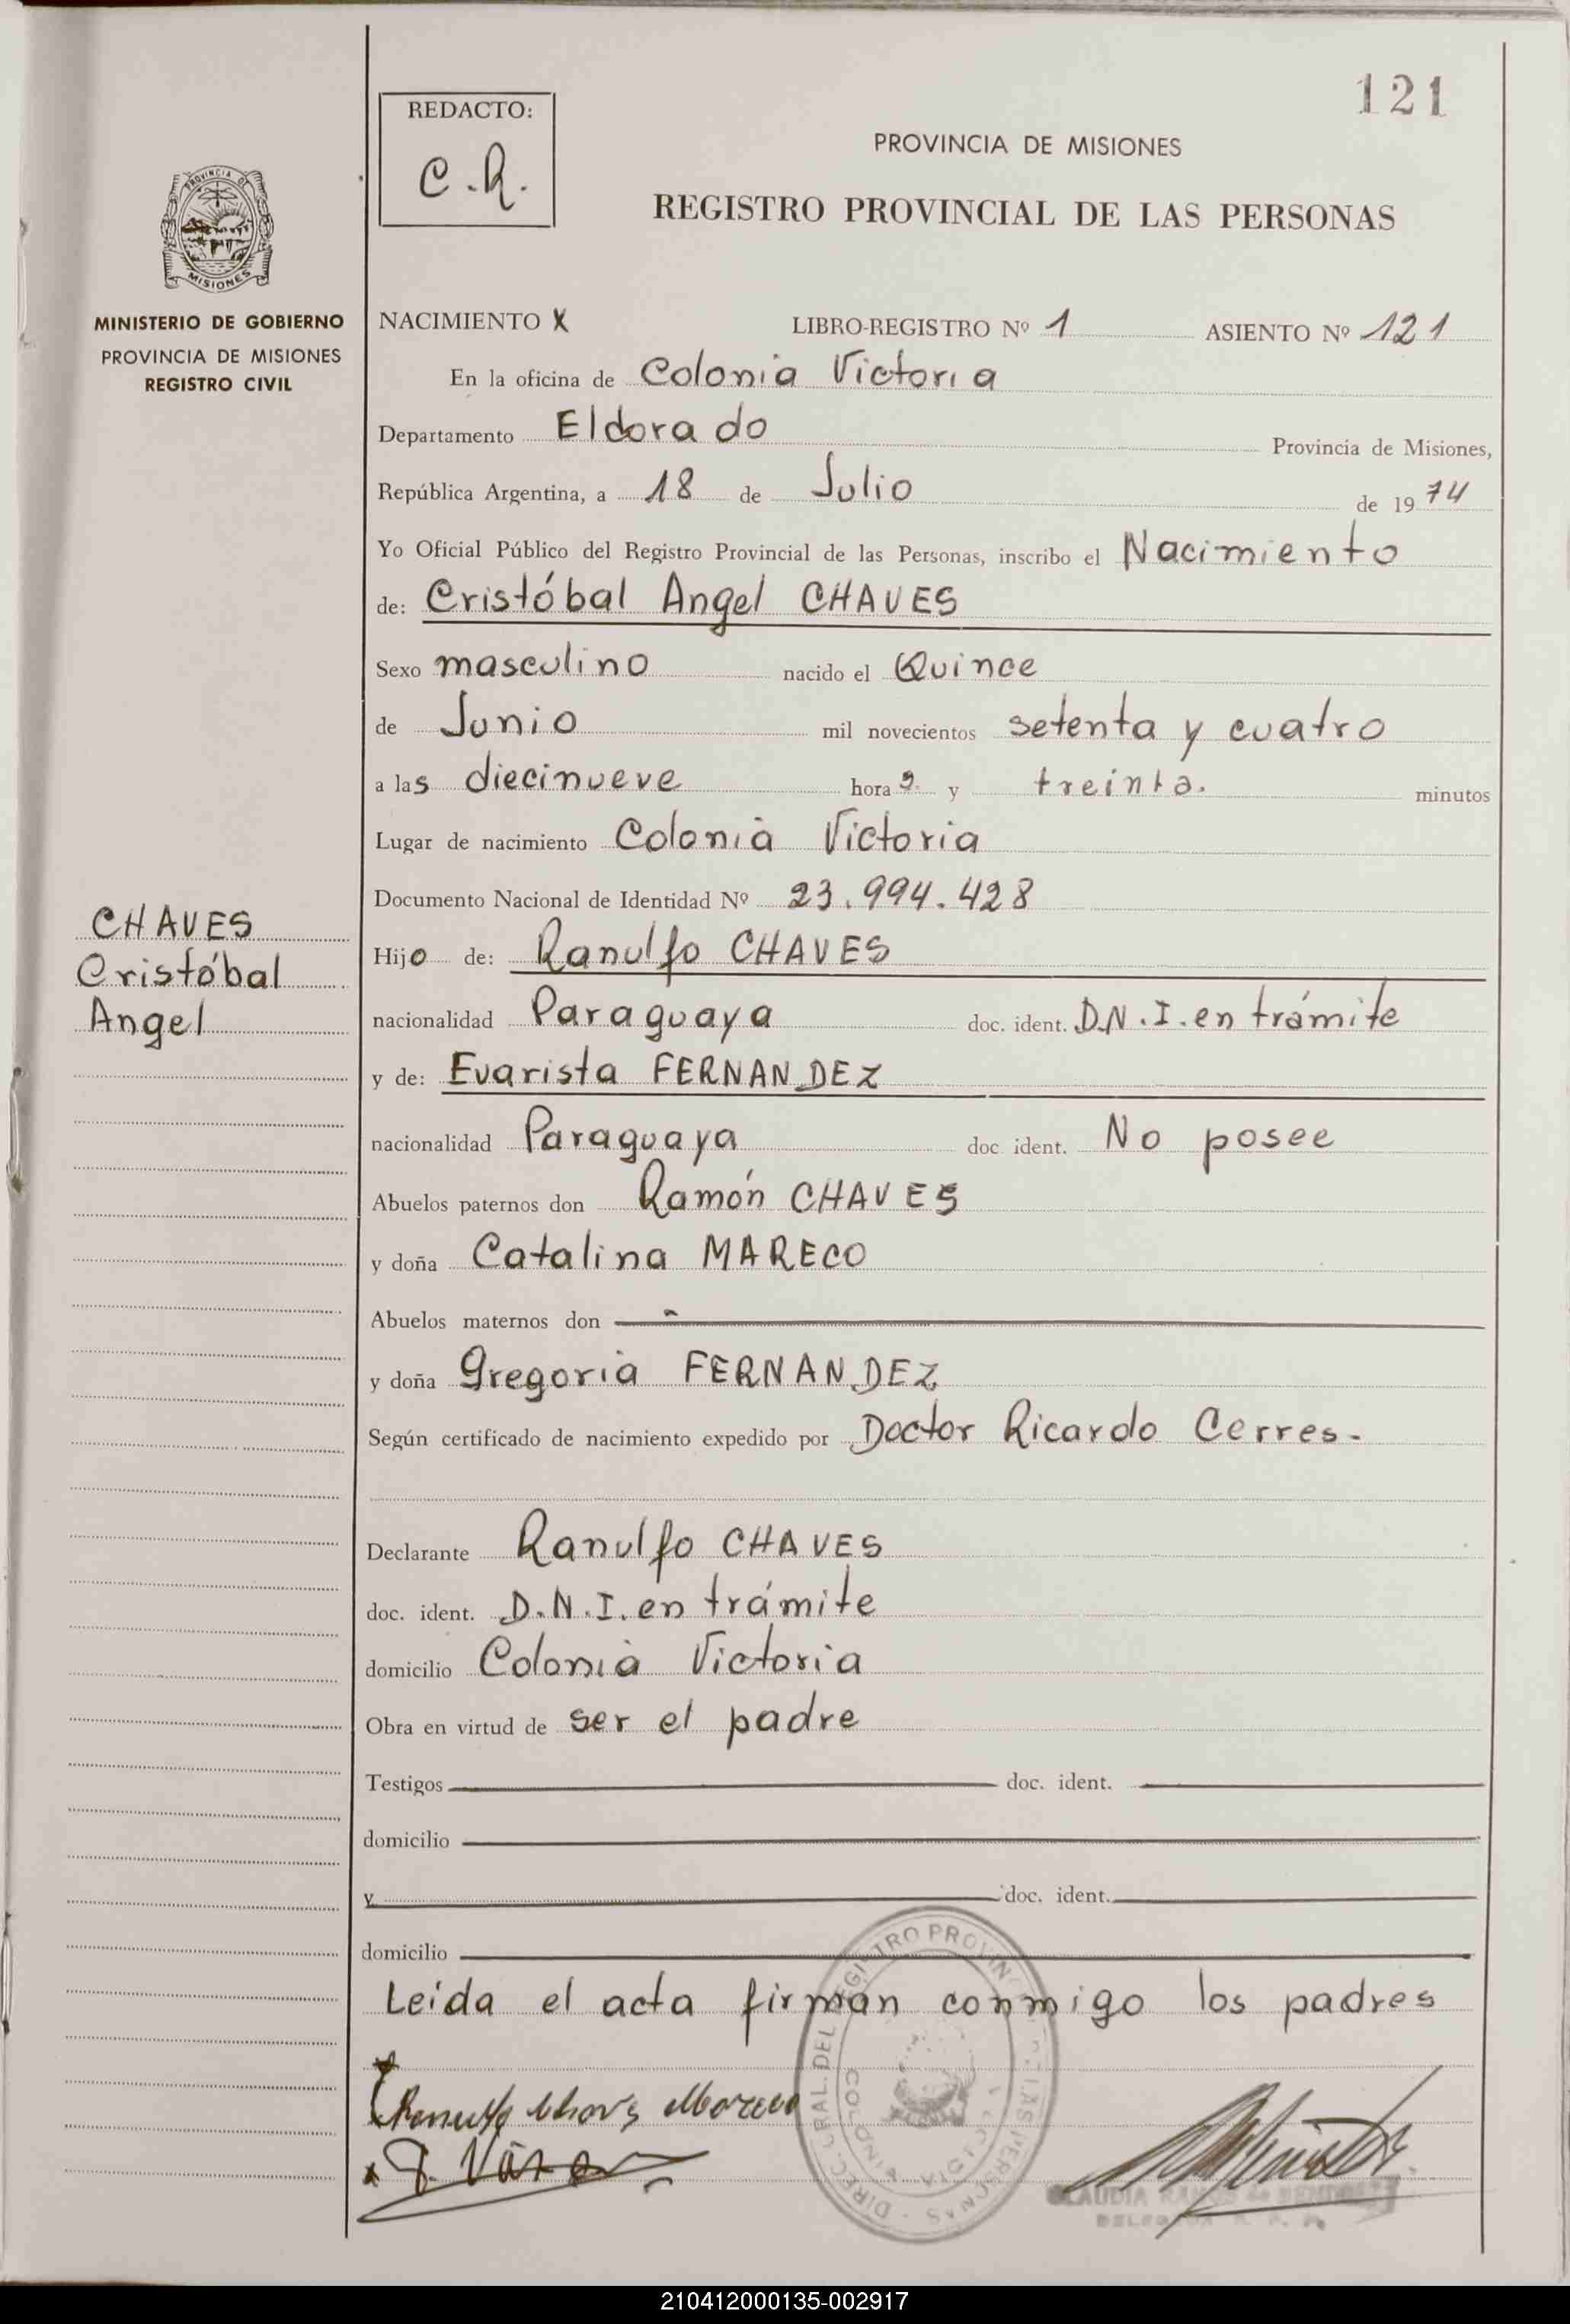 121
REDACTO:
C.R.
PROVINCIA DE MISIONES
REGISTRO PROVINCIAL DE LAS PERSONAS
PROVINCIA DE
MISIONES
MINISTERIO DE GOBIERNO
PROVINCIA DE MISIONES
REGISTRO CIVIL
NACIMIENTO X LIBRO-REGISTRO Nº 1 ASIENTO Nº 121
En la oficina de Colonia Victoria
Departamento Eldorado Provincia de Misiones,
República Argentina, a 18 de Julio de 1974
Yo Oficial Público del Registro Provincial de las Personas, inscribo el Nacimiento
de: Cristóbal Angel CHAVES
Sexo masculino nacido el Quince
de Junio mil novecientos setenta y cuatro
a las diecinueve horas y treinta. minutos
Lugar de nacimiento Colonia Victoria
Documento Nacional de Identidad Nº 23.994.428
CHAVES
Cristóbal
Angel
Hijo de: Ranulfo CHAVES
nacionalidad Paraguaya doc. ident. D.N.I. en trámite
y de: Evarista FERNANDEZ
nacionalidad Paraguaya doc. ident. No posee
Abuelos paternos don Ramón CHAVES
y doña Catalina MARECO
Abuelos maternos don
y doña Gregoria FERNANDEZ
Según certificado de nacimiento expedido por Doctor Ricardo Cerres.-
Declarante Ranulfo CHAVES
doc. ident. D.N.I. en trámite
domicilio Colonia Victoria
Obra en virtud de ser el padre
Testigos doc. ident.
domicilio
y doc. ident.
domicilio
Leída el acta firman conmigo los padres
DIREC. GRAL. DEL REGISTRO PROVIN LAS PERSONAS
CLAUDIA RAMOS de
210412000135-002917